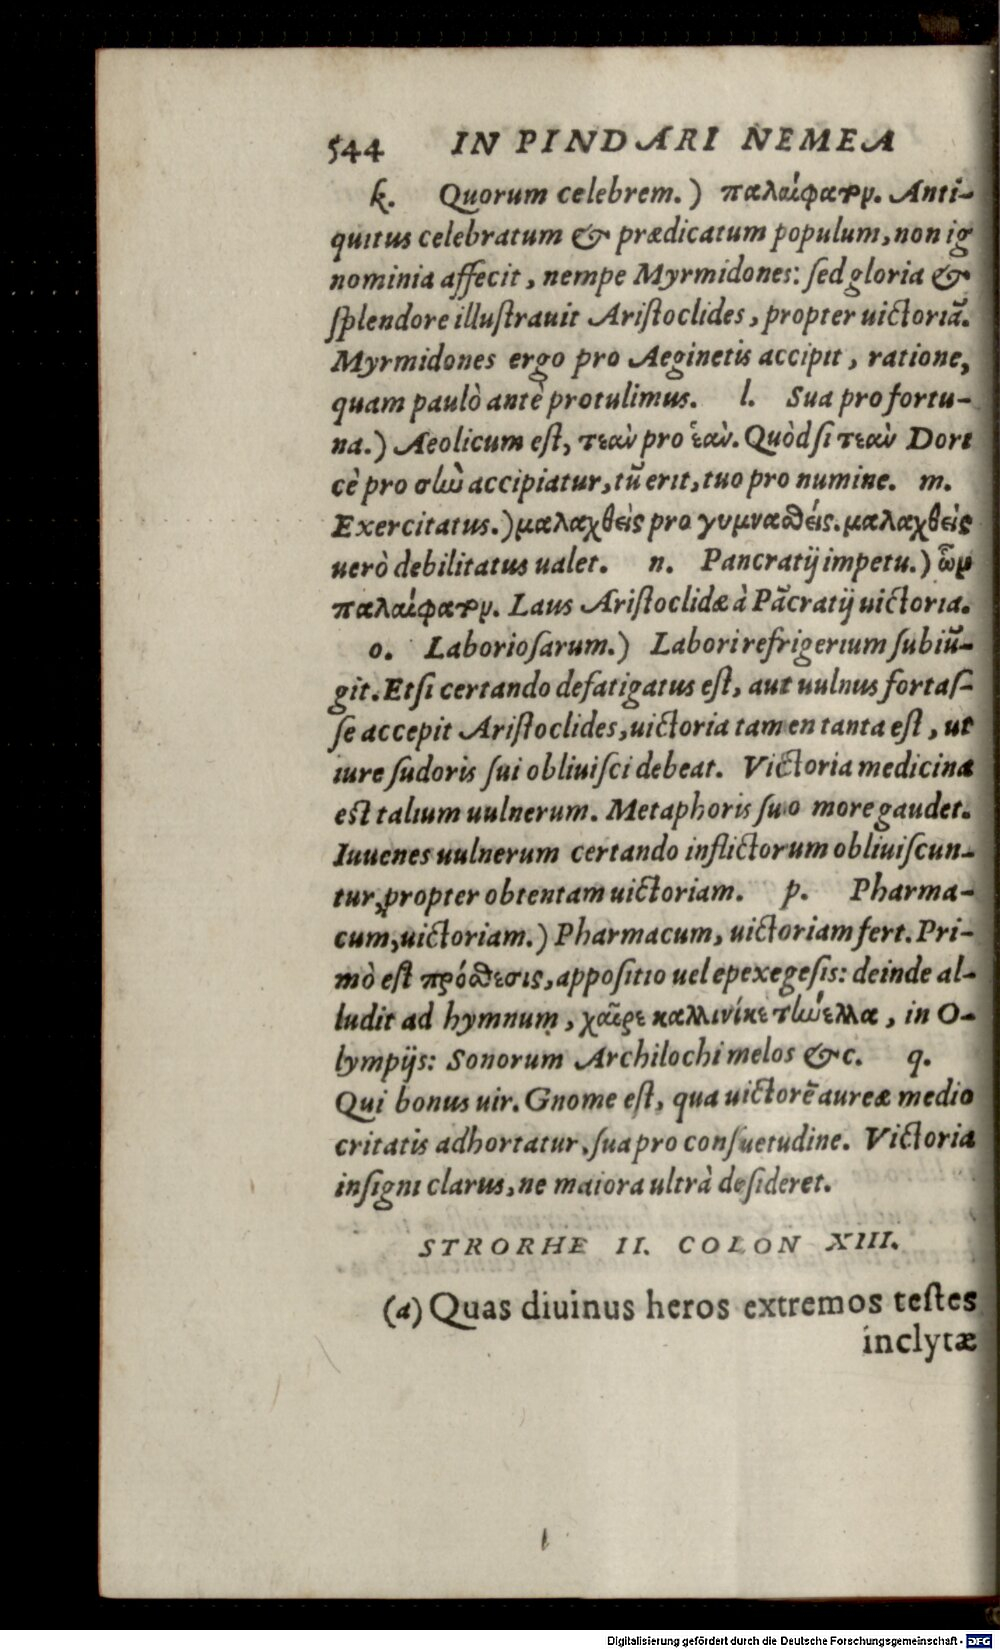 544 IN PINDARI NEMEA
k. Quorum celebrem.) παλαίφατον. Anti-
quitus celebratum & prædicatum populum, non ig
nominia affecit, nempe Myrmidones: sed gloria &
splendore illustrauit Aristoclides, propter uictoriã.
Myrmidones ergo pro Aeginetis accipit, ratione,
quam paulò antè protulimus. l. Sua pro fortu-
na.) Aeolicum est, τεὰν pro ἑὰν. Quòd si τεὰν Dori
cè pro σὴν accipiatur, tũ erit, tuo pro numine. m.
Exercitatus.) μαλαχθεὶς pro γυμνασθείς. μαλαχθεὶς
uerò debilitatus ualet. n. Pancratij impetu.)
παλαίφατον. Laus Aristoclidæ à Pãcratij uictoria.
o. Laboriosarum.) Labori refrigerium subiũ-
git. Etsi certando defatigatus est, aut uulnus fortas-
se accepit Aristoclides, uictoria tamen tanta est, ut
iure sudoris sui obliuisci debeat. Victoria medicina
est talium uulnerum. Metaphoris suo more gaudet.
Iuuenes uulnerum certando inflictorum obliuiscun-
tur, propter obtentam uictoriam. p. Pharma-
cum, uictoriam.) Pharmacum, uictoriam fert. Pri-
mò est πρόσθεσις, appositio uel epexegesis: deinde al-
ludit ad hymnum, χαῖρε καλλινίκε τήνελλα, in O-
lympijs: Sonorum Archilochi melos &c. q.
Qui bonus uir. Gnome est, qua uictorẽ aureæ medio
critatis adhortatur, sua pro consuetudine. Victoria
insigni clarus, ne maiora ultrà desideret.
STRORHE II. COLON XIII.
(a) Quas diuinus heros extremos testes
inclytæ
Digitalisierung gefördert durch die Deutsche Forschungsgemeinschaft - DFG